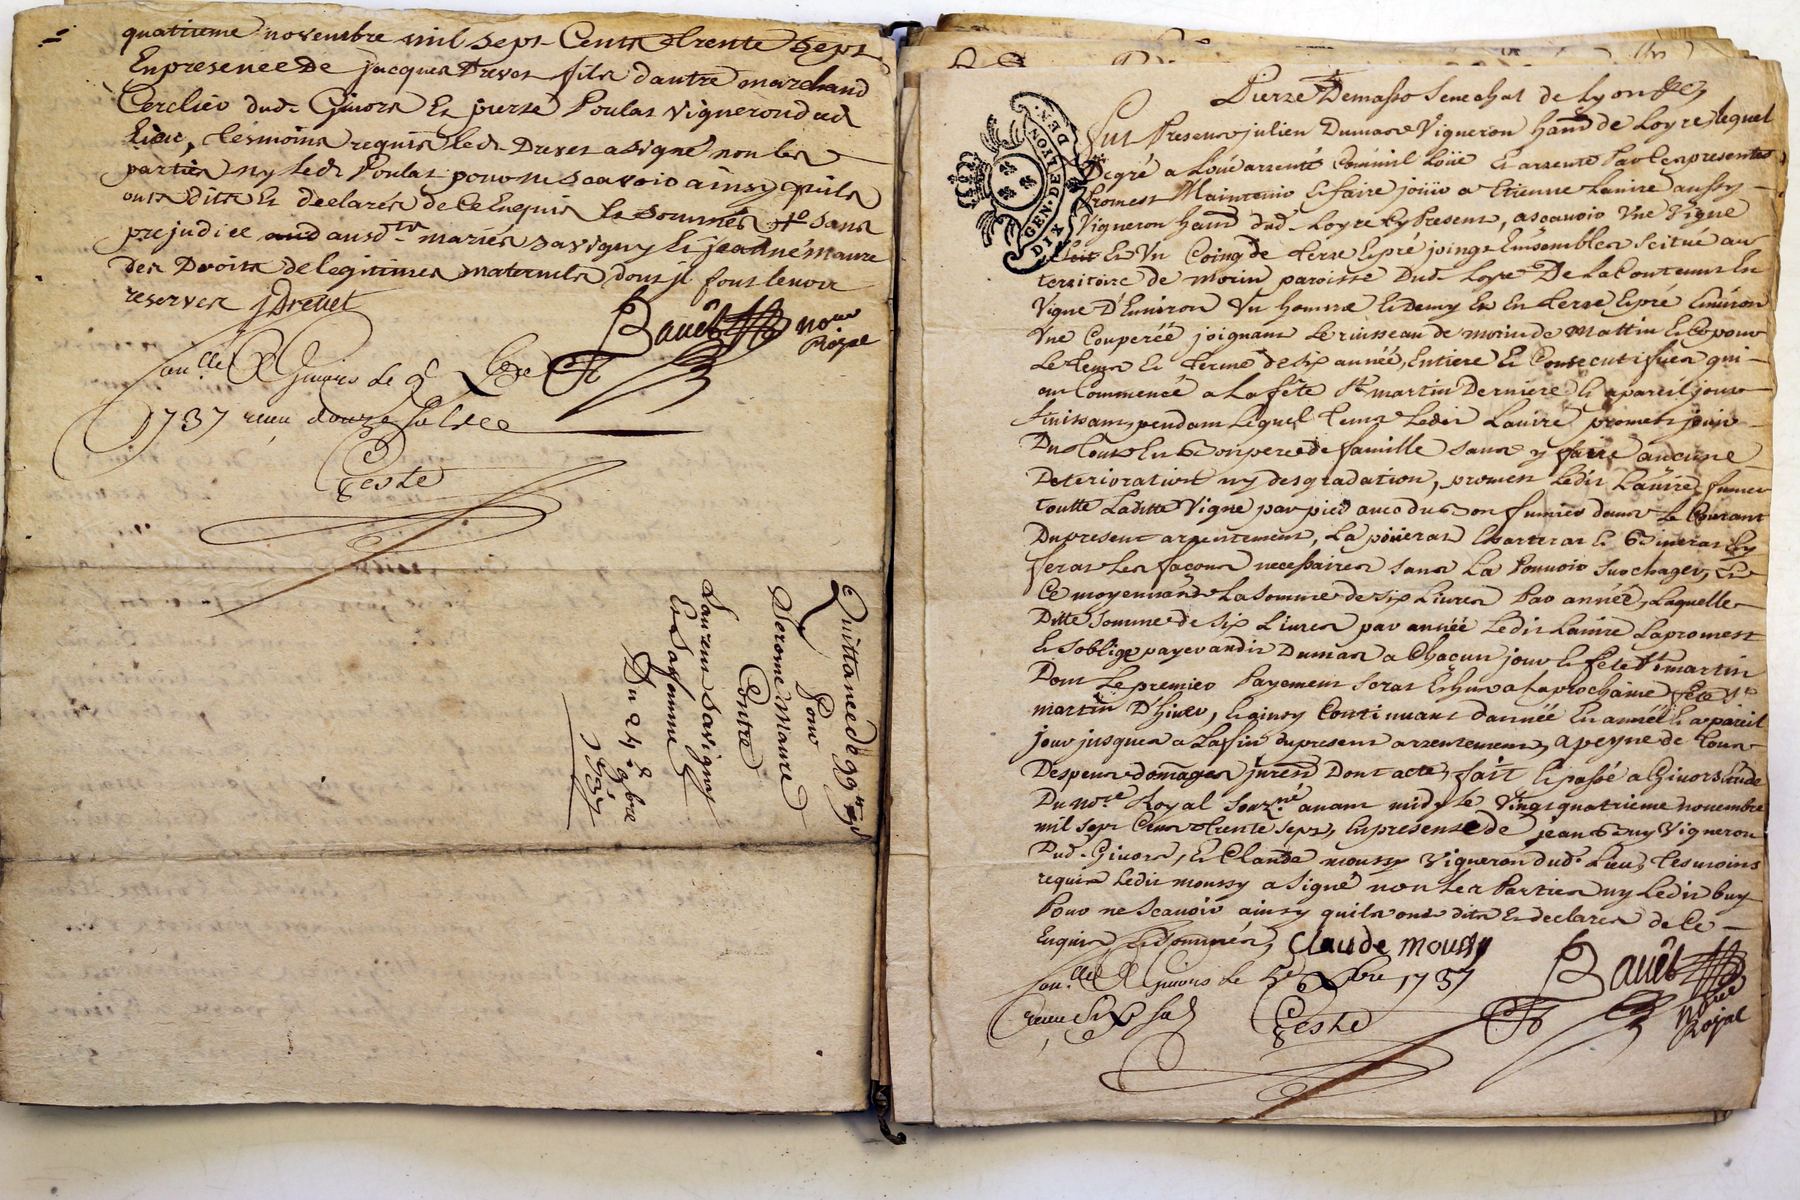 quatrieme novembre mil sept Cents trente sept
En presence De jacques Drevet fils d'autre marchand
Cerclier dud. Givors Et pierre Poulat vigneron dud
Lieu, tesmoins requis led. Drevet a signé non les
parties ny led. Poulat pour ne scavoir ainsy quils
ont dits Et declarés de Ce Enquis Et sommés sans
prejudice aud ausd. mariés savigny Et jeanne maure
des Droits de legitimes maternels dont jl font
reserves JDrevet
Bauet nore
Royal
Givors le 9 Xbre
1737 receu douze sols
Geste
Quittance de 99
Pour
Jerome Maure
Contre
Laurens Savigny
Et sa femme
Du 24 9bre
1737
Pierre Demasso Senechal de Lyon
Fut Present julien Dumas Vigneron hant de Loyre lequel
Degré a Loué arsenté Comme il Loüe Et arsente Par les presentes
Promest Maintenir Et faire joüir a Etienne Lavire aussy
Vigneron hant dud. Loyre Cy Present, ascavoir Une Vigne
Et Un Coing de terre Et pré joings Ensembles Scitué au
territoire de morin paroisse Dud. Loyre De La Contenue En
Vigne D'Environ Un homme Et Demy Et En terre Et pré Environ
Une Couperéé joignant Le ruisseau de morin de Mattin Et Ce pour
Le tems Et terme de six année, Entiere Et Consecutifues qui
ont Commencé a La fête St martin Derniere Et a pareil jour
finissant, pendant Lequel tems Ledit Lavire promest joüir
Du tout En Bon pere de famille sans y faire aucune
Deterioration ny desgradation, promest Ledit Lavire fumer
toutte Laditte Vigne par pied avec du Bon fumier dans Le Courant
Du present arsentement, La poüeras Et Bineras Et y
feras Les façons necessaires sans La Pouvoir surchager, Et
Ce moyennant La somme de six Livres Par année, Laquelle
Ditte somme de six Livres par année Ledit Lavire La promest
Et soblige payer audit Dumas a Chacun jour Et fete St martin
Dont Le premier Payement seras Eschus a La prochaine fete St
martin D'hiver, Et ainsy Continuant d'année En année Et a pareil
jour jusques a La fin du present arsentement, a peyne de tous
Despens domages jnterests Dont acte, fait Et passé a Givors Etude
Du nore Royal Souzné avant midy le Vingt quatrieme novembre
mil sept Cens trente sept, En presense de jean Buy Vigneron
Dud. Givors, Et Claude moussy Vigneron dud. Lieu, tesmoins
requis Ledit moussy a signé non Les Parties ny Ledit buy
Pour ne Scavoir ainsy quils ont dits Et declarés de Ce
Enquis Et sommés, Claude moussy
Givors le 5e Xbre 1737
Bauet
receu six sols
Geste
Nore
Royal
GEN. DE LYON
DIX DEN.